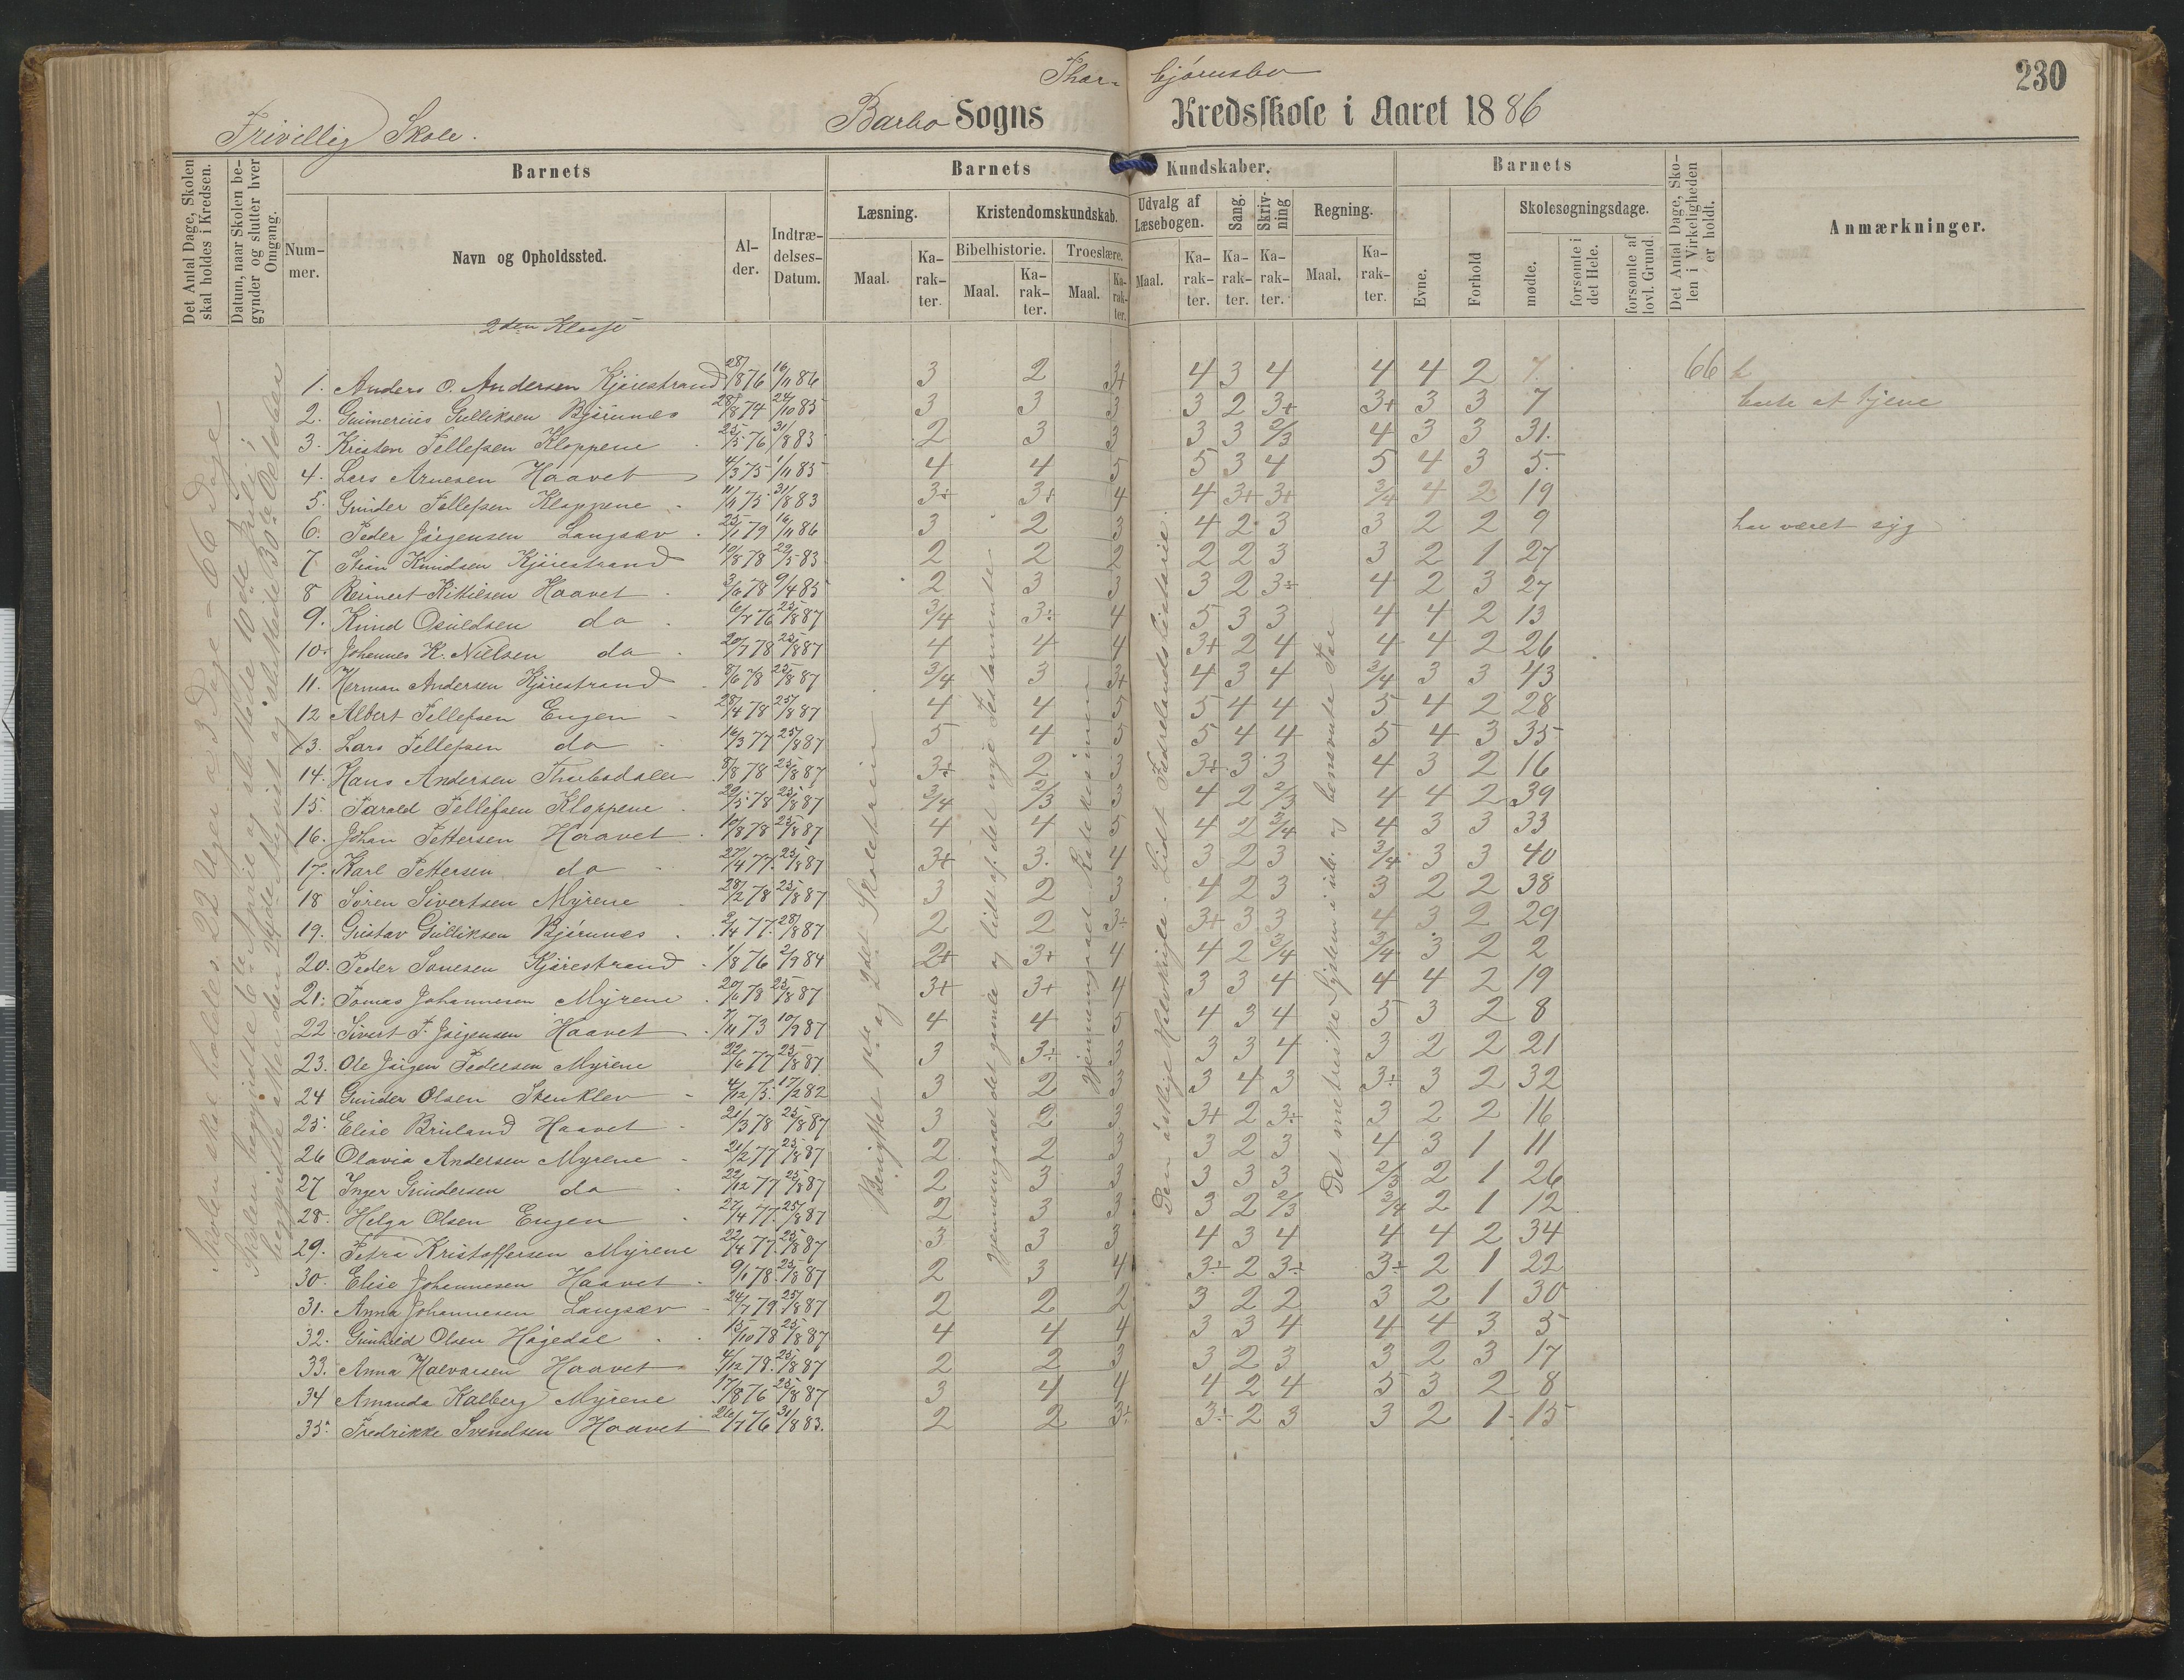 230
Thor- bjørnsbo
Frivillig Skole. Barbo Sogns Kredsskole i Aaret 1886
Det Antal Dage, Skolen skal holdes i Kredsen.
Datum, naar Skolen begynder og slutter hver Omgang.
Barnets
Nummer.
Navn og Opholdssted.
Alder.
Indtrædelses-Datum.
Barnets Kundskaber.
Læsning.
Maal.
Karakter.
Kristendomskundskab.
Bibelhistorie.
Maal.
Karakter.
Troeslære.
Maal.
Karakter.
Udvalg af Læsebogen.
Maal.
Karakter.
Sang.
Karakter.
Skrivning
Karakter.
Regning.
Maal.
Karakter.
Barnets
Evne.
Forhold
Skolesøgningsdage.
mødte.
forsømte i det Hele.
forsømte af lovl. Grund.
Det Antal Dage, Skolen i Virkeligheden er holdt.
Anmærkninger.
2den Klasse
Skolen skal holdes 22 Uger a 3 Dage = 66 Dage
Benyttet 1ste og 2det Skoletrin
Det metriske System i ub. og benævnte Tal
1. Anders O. Andersen Kjørestrand 28/8 76 16/11 86 3 2 3+ 4 3 4 4 4 2 7. 66
2. Gunerius Gulliksen Bjørnnes 28/8 74 24/10 85 3 3 3 3 2 3+ 3+ 3 3 7 ude at tjene
3. Kristen Tellefsen Kloppene 25/5 76 31/8 83 2 3 3 3 3 2/3 4 3 3 31.
4. Lars Arnesen Haavet 4/3 75 1/11 85 4 4 5 5 3 4 5 4 3 5.
5. Gunder Tellefsen Kloppene 11/11 75 31/8 83 3+ 3+ 4 4 3+ 3+ 3/4 4 2 19
6. Peder Jørgensen Langsæv 25/1 79 16/11 86 3 2 3 4 2 3 3 2 2 9 har været syg
7 Stian Knudsen Kjørestrand 10/8 78 22/5 83 2 2 2 2 2 3 3 2 1 27
8 Reinert Kittilsen Haavet 3/6 78 9/4 85 2 3 3 3 2 3÷ 4 2 3 27
9. Knud Osuldsen do 6/7 76 25/8 87 3/4 3÷ 4 5 3 3 4 4 2 13
10. Johannes K. Nilsen do 20/7 78 25/8 87 4 4 4 3+ 2 4 4 4 2 26
11. Herman Andersen Kjørestrand 8/6 78 25/8 87 3/4 3 3+ 4 3 4 3/4 3 3 43
12 Albert Tellefsen Engen 28/4 78 25/8 87 4 4 5 5 4 4 5 4 2 28
13. Lars Tellefsen do 16/3 77 25/8 87 5 4 5 5 4 4 5 4 3 35
14. Hans Andersen 8/8 78 25/8 87 3÷ 2 3 3+ 3 3 4 3 2 16
15. Tarald Tellefsen Kloppene 29/5 78 25/8 87 3/4 2/3 3 4 2 2/3 4 4 2 39
16. Johan Pettersen Haavet 10/8 78 25/8 87 4 4 5 4 2 3/4 4 3 3 33
17. Karl Pettersen do 27/4 77. 25/8 87 3+ 3. 4 3 2 3 3/4 3 3 40
18 Søren Sivertsen Myrene 28/2 78 25/8 87 3 2 3 4 2 3 3 2 2 38
19. Gustav Gulliksen Bjørnnes 2/4 77. 28/8 87 2 2 3÷ 3+ 3 3 4 3 2 29
20. Peder Sonesen Kjørestrand 1/8 76 2/9 84 2+ 3+ 4 4 2 3/4 3/4 3 2 2
21. Tomas Johannesen Myrene 20/6 78 25/8 87 3+ 3+ 4 3 3 4 4 4 2 19
22. Sivert T. Jørgensen Haavet 7/11 73 10/9 87 4 4 5 4 3 4 5 3 2 8
23. Ole Jørgen Pedersen Myrene 22/6 77 25/8 87 3 3÷ 3 3 3 4 3 2 2 21
24 Gunder Olsen Stenklev 4/12 75. 17/2 82 3 2 3 3 4 3 3÷ 3 2 32
25. Elise Bruland Haavet 21/3 78 25/8 87 3 2 3 3+ 2 3÷ 3 2 2 16
26 Olavia Andersen Myrene 21/2 77 25/8 87 2 2 3 3 2 3 4 3 1 11
27 Inger Gundersen do 22/12 77 25/8 87 2 3 3 3 3 3 2/3 2 1 26
28. Helga Olsen Engen 27/4 77. 25/8 87 2 3 3 3 2 2/3 3/4 2 1 12
29. Petra Kristoffersen Myrene 22/4 77. 25/8 87 3 3 3 4 3 4 4 4 2 34
30. Elise Johannesen Haavet 9/1 78. 25/8 87 2 3 4 3÷ 2 3÷ 3÷ 2 1 22
31. Anna Johannesen Langsæv 24/7 79. 25/8 87 2 2 2 3 2 2 3 2 1 30
32. Gunhild Olsen Høgedal 15/10 78 25/8 87 4 4 4 3 3 4 4 4 3 5
33. Anna Halvorsen Haavet 4/12 78. 25/8 87 2 2 3 3 2 3 3 2 3 17
34 Amanda Kalberg Myrene 17/8 76 25/8 87 3 4 4 4 2 4 5 3 2 8
35. Fredrikke Svendsen Haavet 26/7 76 31/8 83. 2 2 3÷ 3÷ 2 3 3 2 1 15